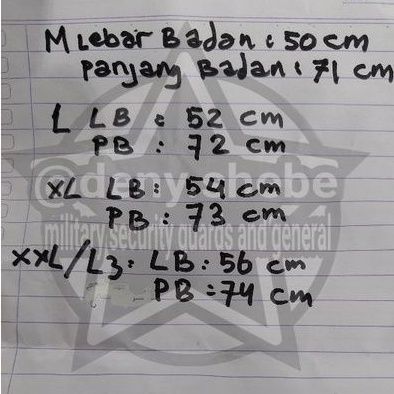 M Lebar Badan : 50 cm
Panjang Badan : 71 cm
L LB : 52 cm
PB : 72 cm
@denyshobe
XL LB : 54 cm
PB : 73 cm
military,security guards and general
XXL/L3 : LB : 56 cm
PB : 74 cm